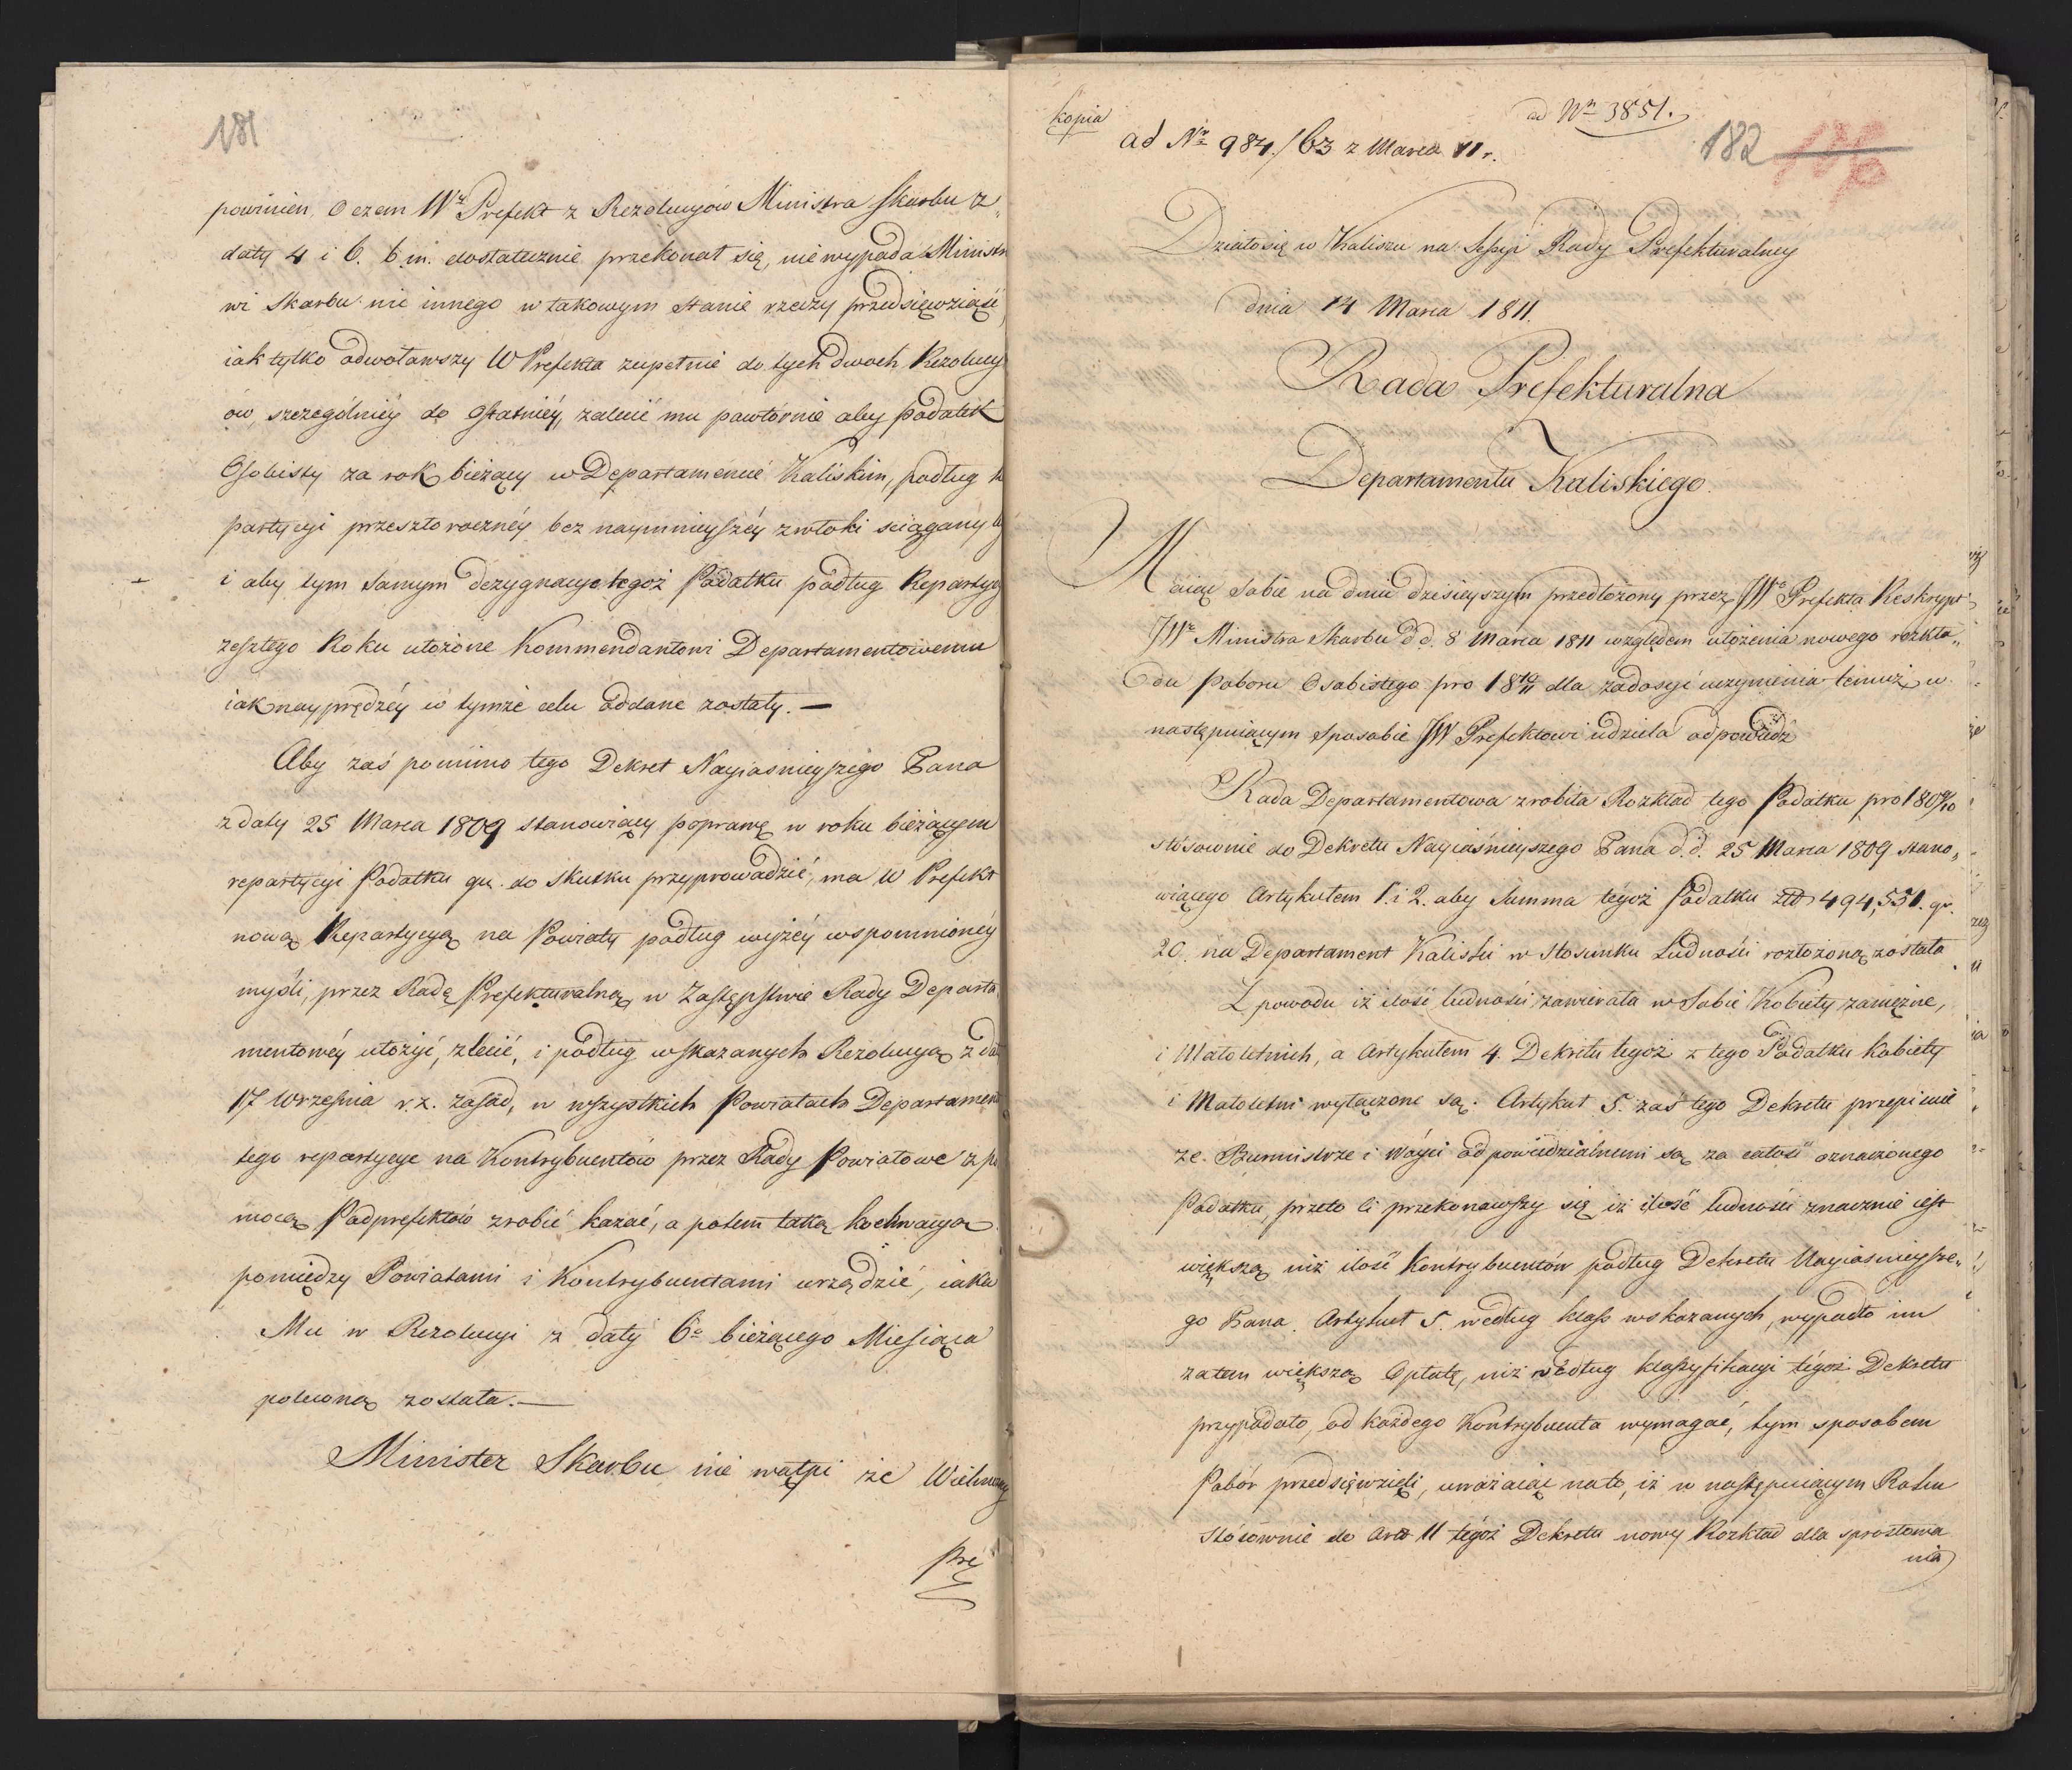 181
powinien, o czem Wż Prefekt z Rezolucyów Ministra Skarbu z
daty 4 i 6. b. m. dostatecznie przekonał się, nie wypada Ministro
wi Skarbu nic innego w takowym stanie rzeczy przedsięwziąść
iak tylko odwoławszy W Prefekta zupełnie do tych dwoch Rezolucy
ów, szczególniéy do ostatniéy, zalecić mu powtórnie aby podatek
Osobisty za rok bieżący w Departamencie Kaliskim, podług
partycyi przeszłorocznéy bez naymnieyszéy zwłoki sciągany
i aby tym samym dezygnacye tegoż Podatku podług Repartycy
zeszłego Roku ułożone Kommendantowi Departamentowemu
iak nayprędzéy w tymże celu oddane zostały. —
Aby zaś pomimo tego Dekret Nayiasnieyszego Pana
z daty 25 Marca 1809 stanowiący poprawę w roku bieżącym
repartycyi Podatku qu. do skutku przyprowadzić, ma W Prefekt
nową Repartycyą na Powiaty podług wyżéy wspomnionéy
myśli, przez Radę Prefekturalną w Zastępstwie Rady Departa
mentowéy ułożyć, zlecić, i podług wskazanych Rezolucyą z dat
17 Września r. z. zasad, w wszystkich Powiatach Departamen
tego repartycye na Kontrybuentów przez Rady Powiatowe z po
mocą Podprefektów zrobić kazać, a potem taką koekwacyą
pomiędzy Powiatami i Kontrybuentami urządzić, iaka
Mu w Rezolucyi z daty 6o bieżącego Miesiąca
poleconą została. —
Minister Skarbu nie wątpi że Wielmożny
Pre
kopia
ad Nr 3851.
ad Nr 984./63 z Marca 11 r.
182
Działo się w Kaliszu na Sessyi Rady Prefekturalney
dnia 14 Marca 1811.
Rada Prefekturalna
Departamentu Kaliskiego.
Maiąc sobie na dniu dzisieyszym przedłożony przez JWo Prefekta Reskrypt
JWo Ministra Skarbu d. d. 8 Marca 1811 względem ułożenia nowego rozkła„
du Poboru Osobistego pro 18 10/11 dla zadosyć uczynienia temuż w
następuiącym sposobie JW Prefektowi udziela odpowiedź
Rada Departamentowa zrobiła Rozkład tego Podatku pro 18 09/10
stósownie do Dekretu Nayiaśnieyszego Pana d. d. 25 Marca 1809 stano„
wiącego Artykułem 1. i 2. aby Summa tegoż Podatku Zło 494,551. gr.
20. na Departament Kaliski w stosunku Ludności rozłożoną została
Z powodu iż ilość ludności zawierała w sobie Kobiety zamężne,
i Małoletnich, a Artykułem 4. Dekretu tegoż z tego Podatku Kobiety
i Małoletni wyłączone są. Artykuł 5. zaś tego Dekretu przepisuie
że Burmistrze i Wóyci odpowiedzialnemi są za całość oznaczonego
Podatku, przeto ci przekonawszy się iż ilość ludności znacznie iest
większą niż ilość Kontrybuentów podług Dekretu Nayiasnieysze„
go Pana. Artykuł 5 według klass wskazanych, wypadło im
zatem większą Opłatę, niż według klassyfikacyi tégoż Dekretu
przypadało, od każdego Kontrybuenta wymagać, tym sposobem
Pobór przedsięwzięli, uważaiąc na to, iż w następuiącym Roku
Stósownie do Arto 11 tégoż Dekretu nowy Rozkład dla sprostowa
nia